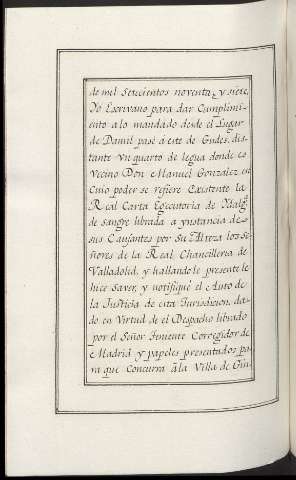 de mil Setecientos noventa, y siete,
Yo Escrivano para dar Cumplimi-
ento a lo mandado desde el Lugar
de Damil pasé á este de Gudes, dis-
tante Vn quarto de legua donde es
Vecino Don Manuel Gonzalez en
Cuio poder se refiere Existente la
Real Carta Egecutoria de Hidalg.ª
de sangre librada a ynstancia de
sus Causantes por Su Alteza los Se-
ñores de la Real Chancilleria de
Valladolid, y hallandole presente le
hice saver, y notifiqué el Auto de
la Justicia de esta Jurisdicion, da-
do en Virtud de el Despacho librado
por el Señor Teniente Corregidor de
Madrid y papeles presentados pa-
ra que Concurra á la Villa de Gin-